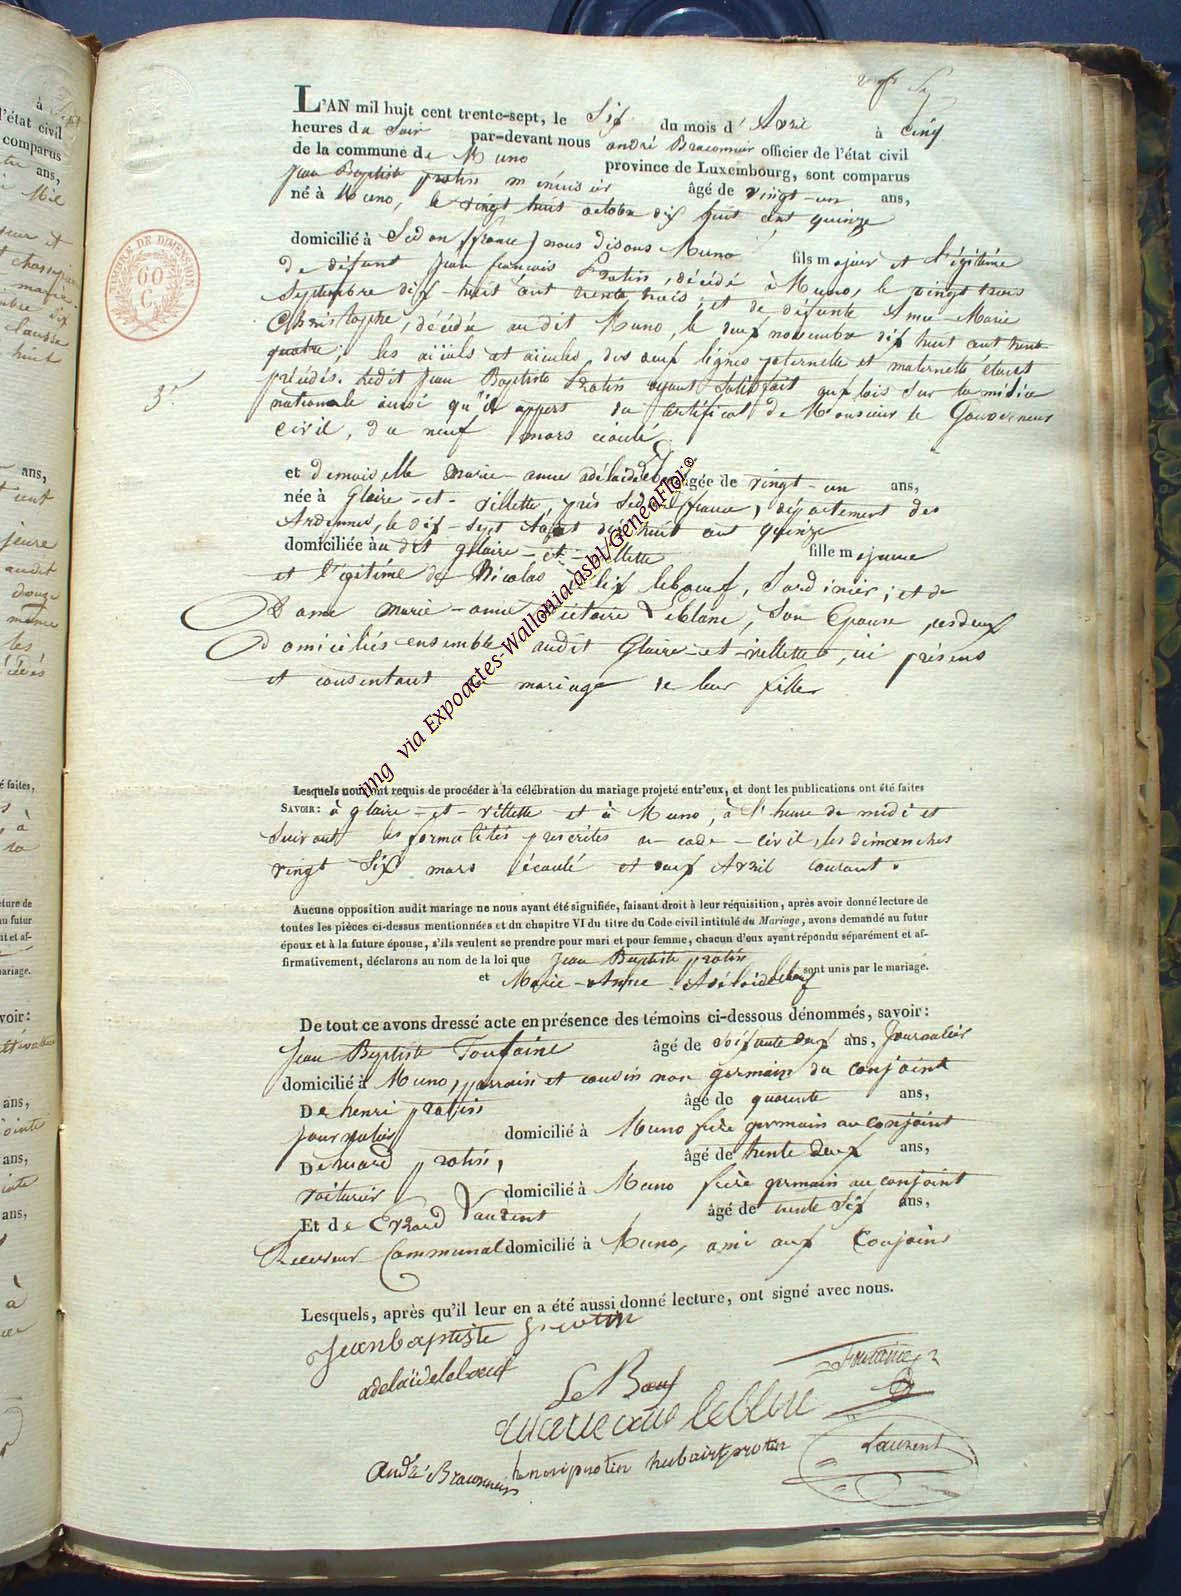 L'AN mil huit cent trente-sept, le Six du mois d'Avril à cinq
heures du Soir par-devant nous andré Braconnier officier de l'état civil
de la commune de Muno province de Luxembourg, sont comparus
Jean Baptiste protin menuisier âgé de vingt-un ans,
né à Muno, le vingt huit octobre dix huit cent quinze
domicilié à Sedan (france) nous disons Muno fils majeur et légitime
de défunt Jean françois Protin, décédé à Muno, le vingt trois
Septembre dix-huit cent trente trois; et de défunte Anne-Marie
Christophe, décédée audit Muno, le deux novembre dix huit cent trente
quatre; les aïeuls et aïeules des deux lignes paternelle et maternelle étant
précédés. Ledit Jean Baptiste Protin ayant satisfait aux lois sur la milice
nationale ainsi qu'il appert du certificat de Monsieur le Gouverneur
civil, du neuf mars écoulé
3e
et demoiselle marie-anne adélaïde leboeuf âgée de vingt-un ans,
née à Glaire-et-villette, près Sedan (france), département des
Ardennes, le dix-Sept Août dix huit cent quinze
domiciliée audit glaire-et-villette fille majeure
et légitime de Nicolas leboeuf, Jardinier; et de
Dame marie-anne victoire Leblanc, Son Epouse, ces deux
domiciliés ensemble audit Glaire-et-villette, ici présens
et consentant au mariage de leur fille
img via Expoactes-Wallonia asbl/GenéaFlor®
Lesquels nous ont requis de procéder à la célébration du mariage projeté entr'eux, et dont les publications ont été faites
SAVOIR: à glaire-et-villette et à Muno, à l'heure de midi et
suivant les formalités prescrites au code-civil, les dimanches
vingt Six mars écoulé et deux Avril courant.
Aucune opposition audit mariage ne nous ayant été signifiée, faisant droit à leur réquisition, après avoir donné lecture de
toutes les pièces ci-dessus mentionnées et du chapitre VI du titre du Code civil intitulé du Mariage, avons demandé au futur
époux et à la future épouse, s'ils veulent se prendre pour mari et pour femme, chacun d'eux ayant répondu séparément et af-
firmativement, déclarons au nom de la loi que Jean Baptiste protin
et Marie-Anne Adélaïde leboeuf sont unis par le mariage.
De tout ce avons dressé acte en présence des témoins ci-dessous dénommés, savoir:
Jean Baptiste Fontaine âgé de soixante deux ans, Journalier
domicilié à Muno, parrain et cousin non germain du conjoint
De henri protin âgé de quarante ans,
Journalier domicilié à Muno frère germain au conjoint
De protin, âgé de trente deux ans,
voiturier domicilié à Muno frère germain au conjoint
Et de Evrard Laurent âgé de trente Six ans,
Receveur Communal domicilié à Muno, ami aux Conjoins
Lesquels, après qu'il leur en a été aussi donné lecture, ont signé avec nous.
Jean baptiste protin
adelaïde leboeuf
Le Boeuf
Fontaine
marie anne leblanc
Laurent
André Braconnier henri protin hubert protin
TIMBRE DE DIMENSION
60
C.